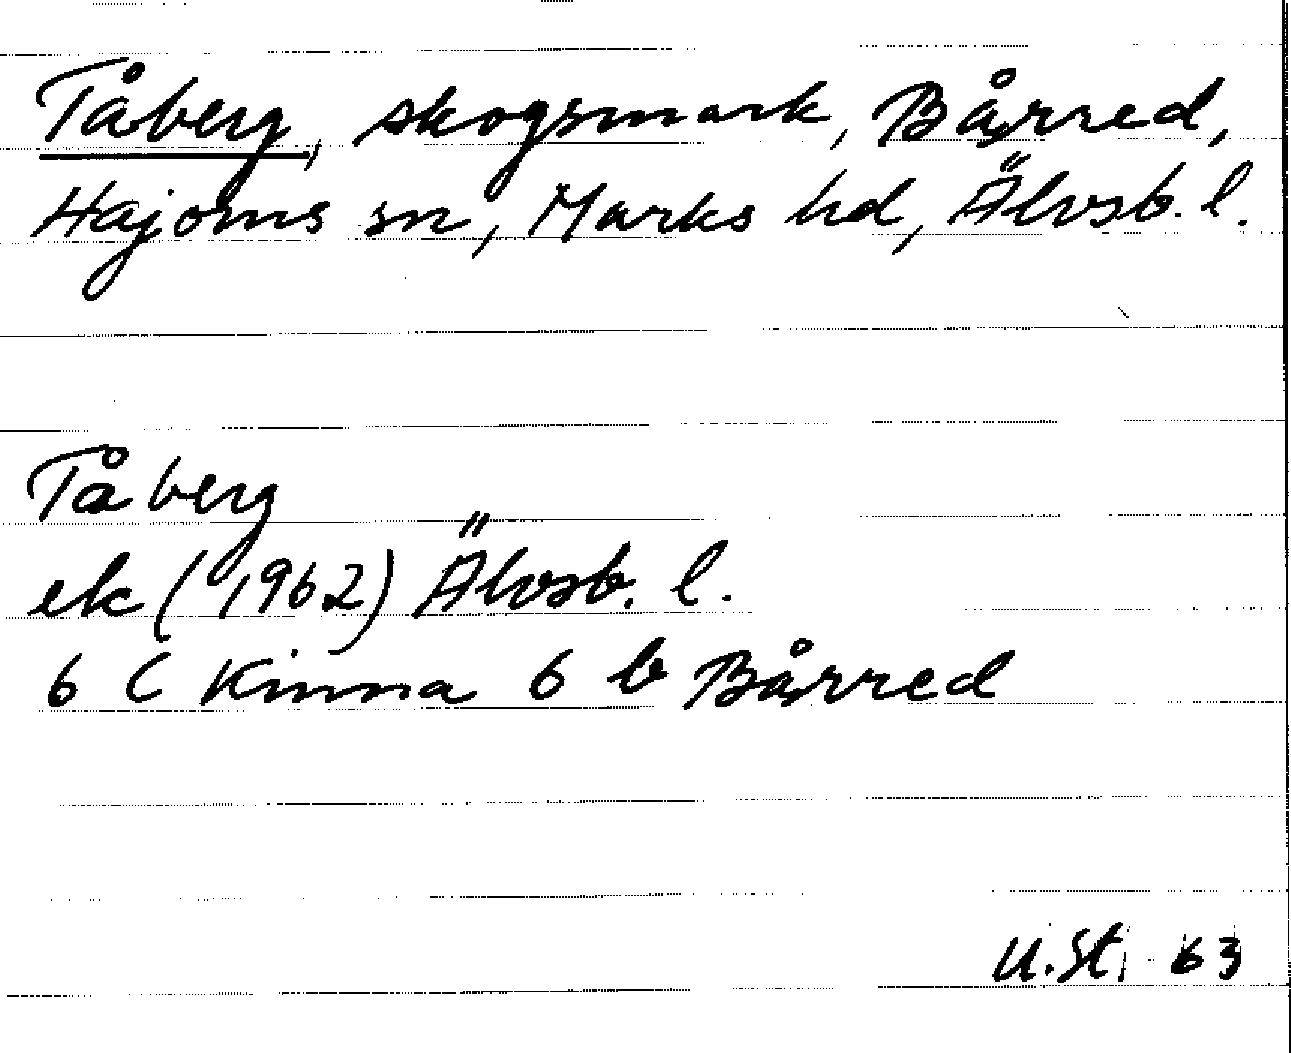 Tåberg, skogsmark, Bårred,
Hajoms sn, Marks hd, Älvsb. l.
Tåberg
ek (1962) Älvsb. l.
6 C Kinna 6 b Bårred
U.St. 63